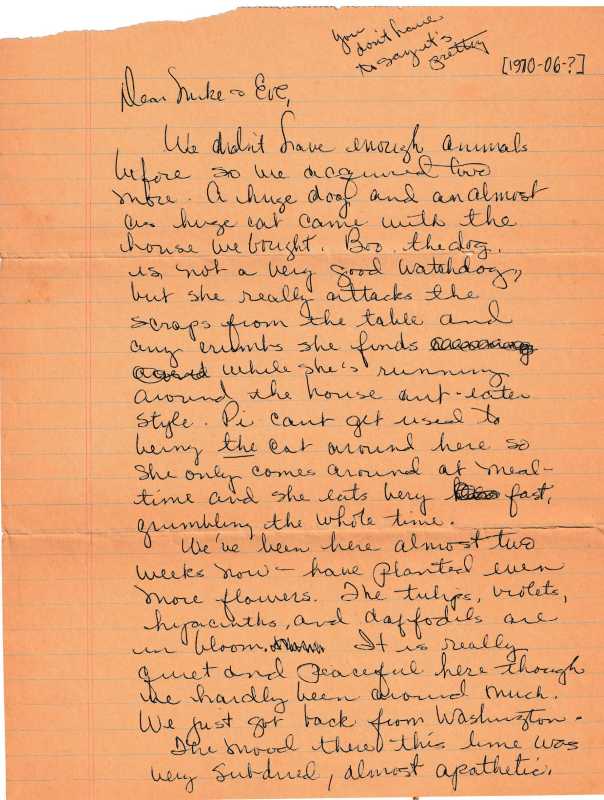 You
don't have
to say it's
pretty
[1970-06-?]
Dear Mike & Eve,
We didn't have enough animals
before so we acquired two
more. A huge dog and an almost
as huge cat came with the
house we bought. Boo, the dog,
is not a very good watchdog,
but she really attacks the
scraps from the table and
any crumbs she finds
while she's running
around the house ant-eater
style. Pi can't get used to
being the cat around here so
she only comes around at meal-
time and she eats very fast,
grumbling the whole time.
We've been here almost two
weeks now - have planted even
more flowers. The tulips, violets,
hyacinths, and daffodils are
in bloom. It is really
quiet and peaceful here though
we hardly been around much.
We just got back from Washington.
The mood there this time was
very subdued, almost apathetic.